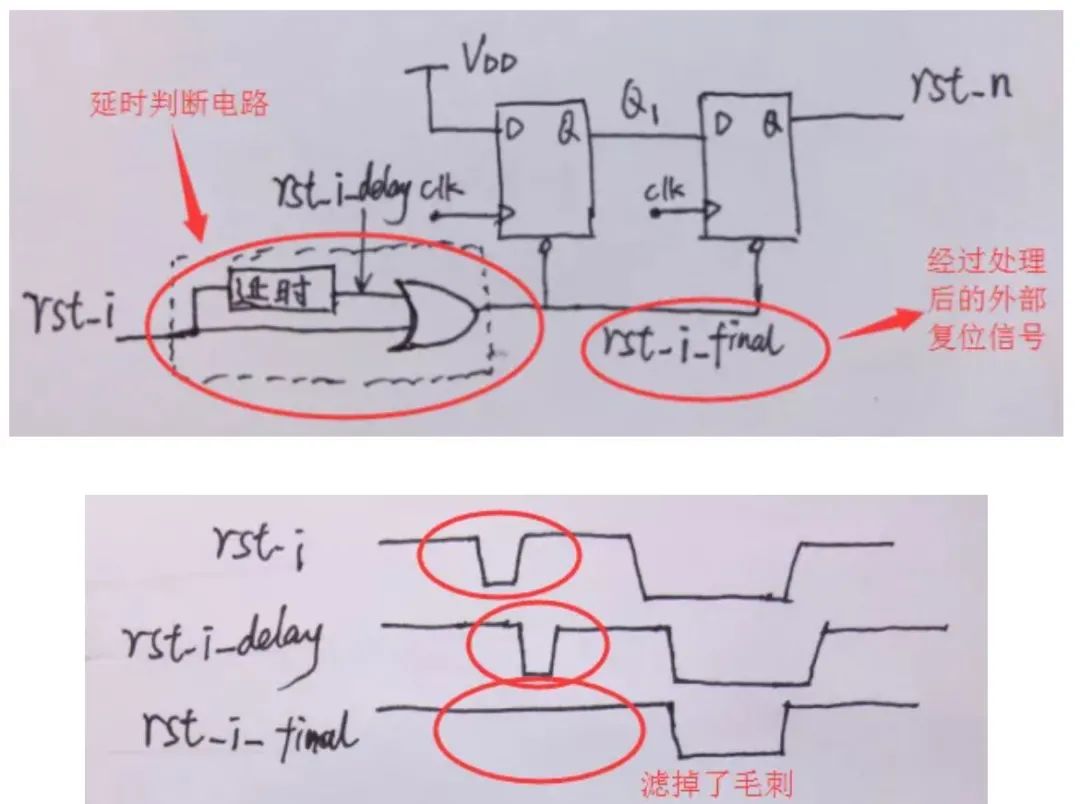 延时判断电路
VDD
D
Q
Q1
D
Q
rst_n
rst_i_delay
clk
clk
rst_i
延时
rst_i_final
经过处理
后的外部
复位信号
rst_i
rst_i_delay
rst_i_final
滤掉了毛刺